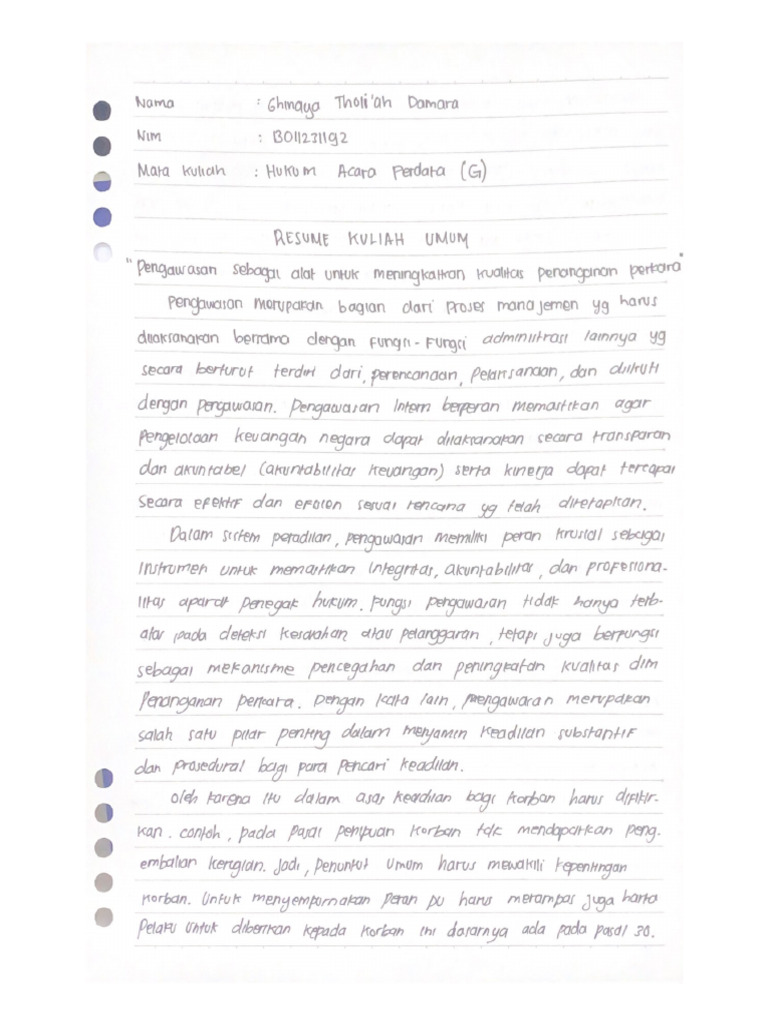 Nama : Ghmaya Tholi'ah Damara
Nim : B011231192
Mata Kuliah : Hukum Acara Perdata (G)
RESUME KULIAH UMUM
"Pengawasan sebagai alat untuk meningkatkan kualitas penanganan perkara"
Pengawasan merupakan bagian dari proses manajemen yg harus
dilaksanakan bersama dengan fungsi-fungsi administrasi lainnya yg
secara berturut terdiri dari, perencanaan, pelaksanaan, dan diikuti
dengan pengawasan. Pengawasan Intern berperan memastikan agar
pengelolaan keuangan negara dapat dilaksanakan secara transparan
dan akuntabel (akuntabilitas keuangan) serta kinerja dapat tercapai
secara efektif dan efisien sesuai rencana yg telah ditetapkan.
Dalam sistem peradilan, pengawasan memiliki peran krusial sebagai
Instrumen untuk memastikan integritas, akuntabilitas, dan profesiona-
litas aparat penegak hukum. Fungsi pengawasan tidak hanya terb-
atas pada deteksi kesalahan atau pelanggaran, tetapi juga berfungsi
sebagai mekanisme pencegahan dan peningkatan kualitas dlm
Penanganan perkara. Dengan kata lain, mengawasan merupakan
salah satu pilar penting dalam menjamin keadilan substantif
dan prosedural bagi para pencari keadilan.
Oleh karena itu dalam asas keadilan bagi korban harus difikir-
kan. contoh, pada pasal penipuan korban tdk mendapatkan peng-
embalian kerugian. Jadi, penuntut umum harus mewakili kepentingan
korban. Untuk menyempurnakan peran pu harus merampas juga harta
Pelaku untuk diberikan kepada korban ini dasarnya ada pada pasal 30.